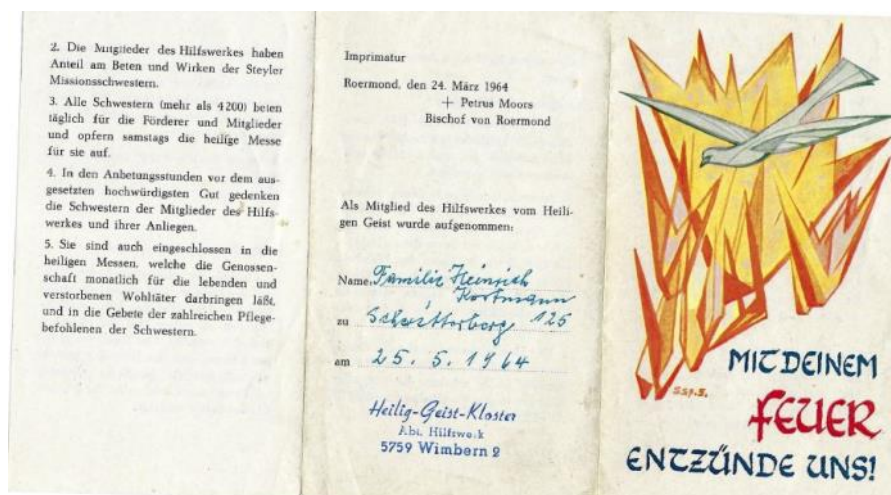 2. Die Mitglieder des Hilfswerkes haben
Anteil am Beten und Wirken der Steyler
Missionsschwestern.
3. Alle Schwestern (mehr als 4200) beten
täglich für die Förderer und Mitglieder
und opfern samstags die heilige Messe
für sie auf.
4. In den Anbetungsstunden vor dem aus-
gesetzten hochwürdigsten Gut gedenken
die Schwestern der Mitglieder des Hilfs-
werkes und ihrer Anliegen.
5. Sie sind auch eingeschlossen in die
heiligen Messen, welche die Genossen-
schaft monatlich für die lebenden und
verstorbenen Wohltäter darbringen läßt,
und in die Gebete der zahlreichen Pflege-
befohlenen der Schwestern.
Imprimatur
Roermond, den 24. März 1964
+ Petrus Moors
Bischof von Roermond
Als Mitglied des Hilfswerkes vom Heili-
gen Geist wurde aufgenommen:
Name: Familie Heinrich
Kortmann
zu 125
am 25. 5. 1964
Heilig-Geist-Kloster
Abt. Hilfswerk
5759 Wimbern 2
MIT DEINEM
FEUER
ENTZÜNDE UNS!